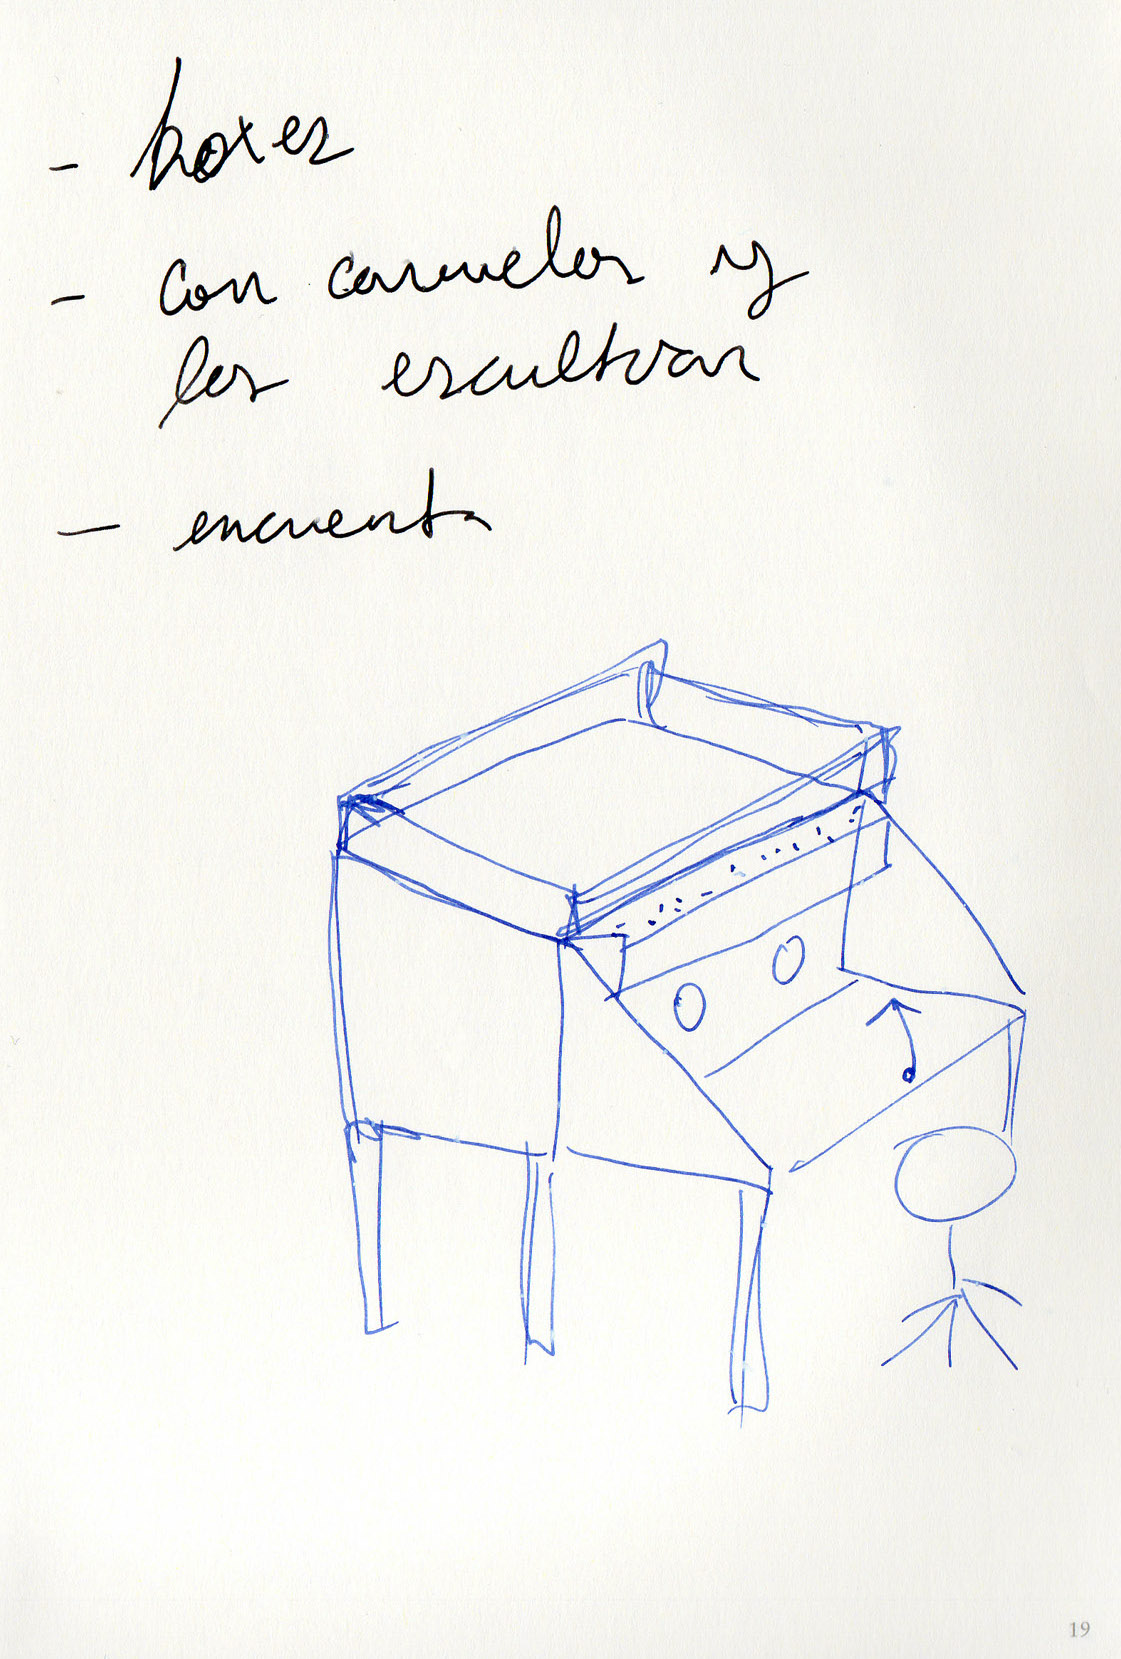 - boxes
- con caruelos y
los escultran
- encuent
19